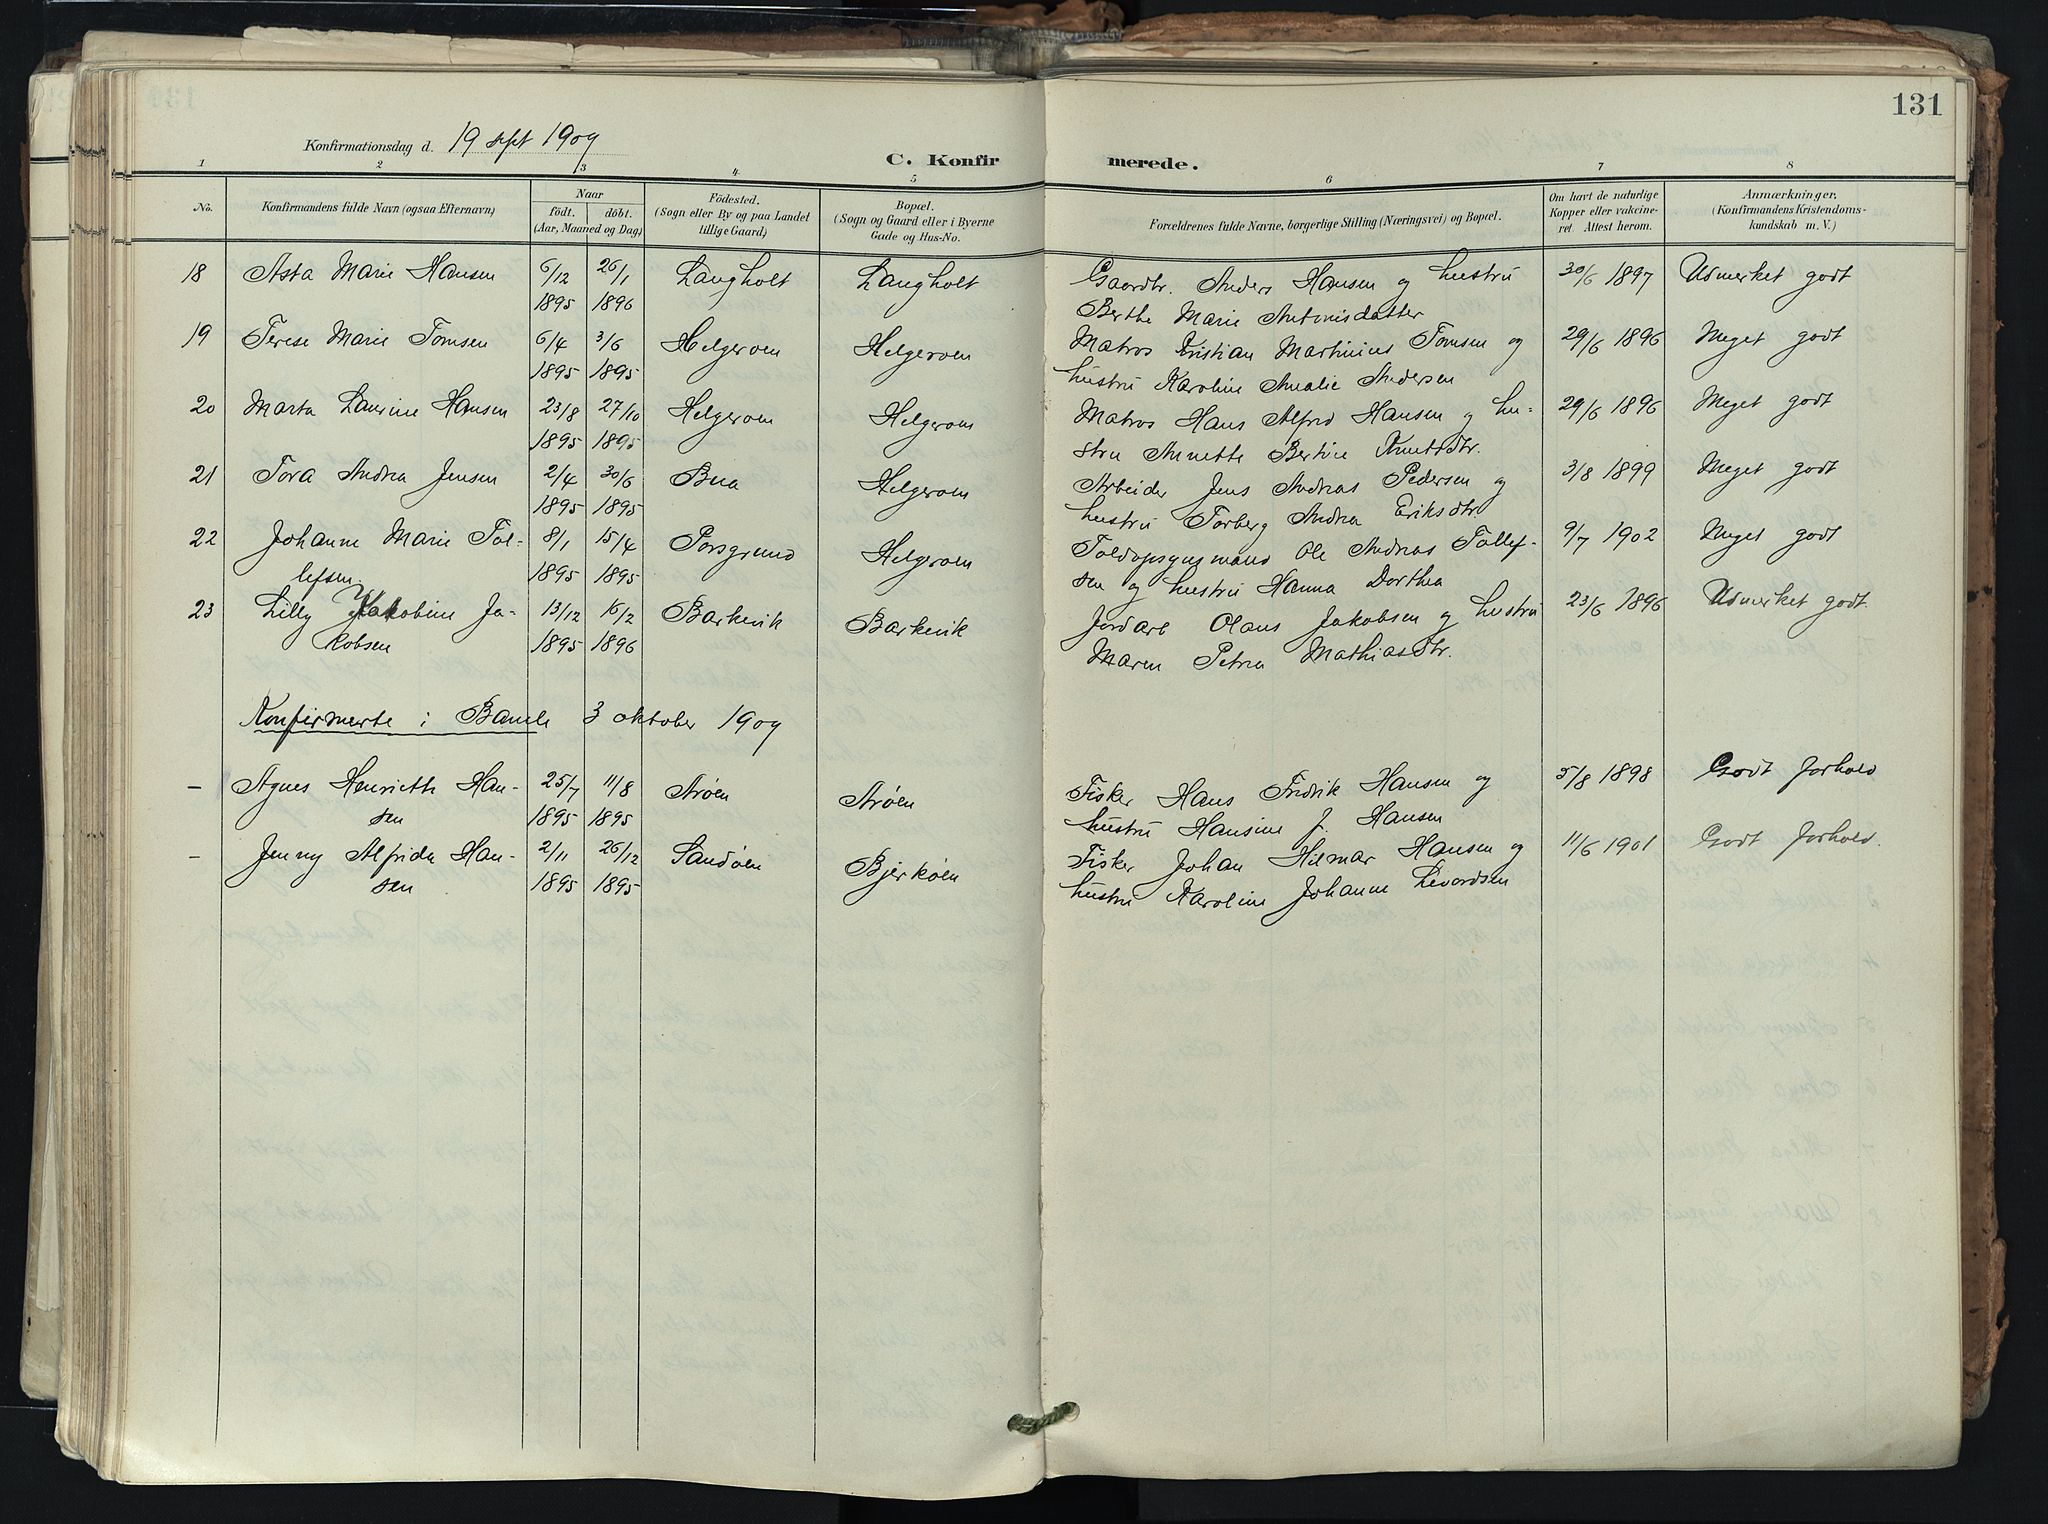 131
Konfirmationsdag d. 19 sept 1909
C. Konfirmerede.
1 2 3 4 5 6 7 8
No.
Konfirmandens fulde Navn (ogsaa Efternavn)
Naar
födt. döbt.
(Aar, Maaned og Dag)
Födested.
(Sogn eller By og paa Landet
tillige Gaard)
Bopæl.
(Sogn og Gaard eller i Byerne
Gade og Hus-No.
Forældrenes fulde Navne, borgerlige Stilling (Næringsvei) og Bopæl.
Om havt de naturlige
Kopper eller vakcine-
ret. Attest herom.
Anmærkninger.
(Konfirmandens Kristendoms-
kundskab m. V.)
18 Asta Marie Hansen 6/12 26/1 Langholt Langholt Gaardbr. Anders Hansen og hustru 30/6 1897 Udmerket godt
1895 1896 Berthe Marie Antonisdatter
19 Terese Marie Tomsen 6/4 3/6 Helgeroen Helgeroen Matros Kristian Martinius Tomsen og 29/6 1896 Meget godt
1895 1895 hustru Karoline Amalie Andersen
20 Marta Laurine Hansen 23/8 27/10 Helgeroen Helgeroen Matros Hans Alfred Hansen og hu- 29/6 1896 Meget godt
1895 1895 stru Annette Bertine Knutsdtr.
21 Tora Andrea Jensen 2/4 30/6 Bua Helgeroen Arbeider Jens Andreas Pedersen og 3/8 1899 Meget godt
1895 1895 hustru Torberg Andrea Eriksdtr
22 Johanne Marie Tol- 8/1 15/4 Porsgrund Helgeroen Toldopsynsmand Ole Andreas Tollef- 9/7 1902 Meget godt
lefsen. 1895 1895 sen og hustru Hanna Dorthea
23 Lilly Jakobine Ja- 13/12 16/2 Barkevik Barkevik Jordarb Olaus Jakobsen og hustru 23/6 1896 Udmerket godt.
kobsen 1895 1896 Maren Petrea Mathiasdtr.
Konfirmerte i Bamle 3 oktober 1909
– Agnes Henriette Han- 25/7 11/8 Arøen Arøen Fisker Hans Fredrik Hansen og 5/8 1898 Godt Forhold
sen 1895 1895 hustru Hansine J. Hansen
– Jenny Alfrida Han- 2/11 26/12 Sandøen Bjerkøen Fisker Johan Hilmar Hansen og 11/6 1901 Godt Forhold.
sen 1895 1895 hustru Karoline Johanne Levordsen